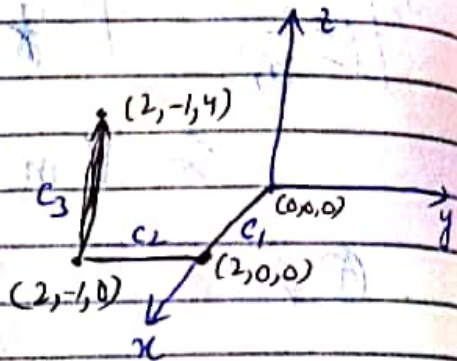 z
(2,-1,4)
C3
(0,0,0)
y
C2
C1
(2,0,0)
(2,-1,0)
x